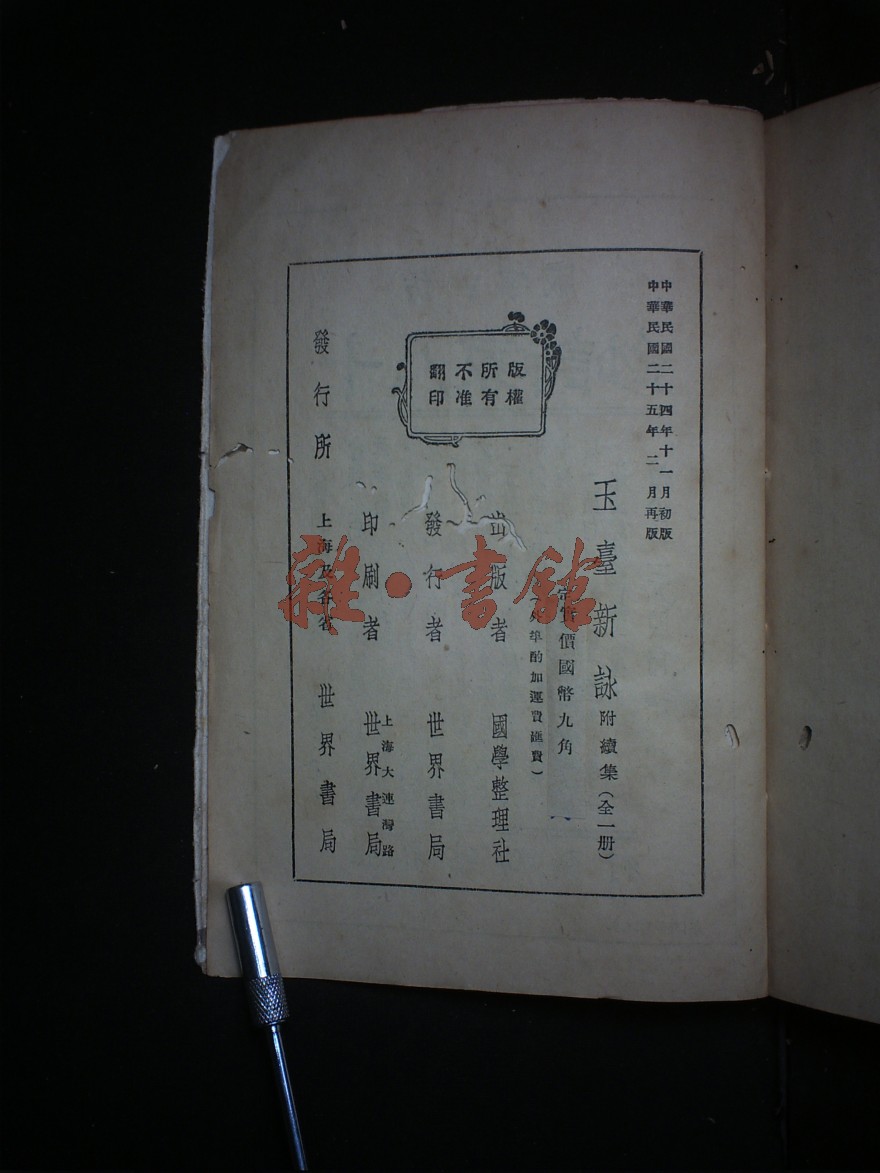 中華民國二十四年十一月初版
中華民國二十五年二月再版
玉臺新詠附續集（全一册）
價國幣九角
酌加運費滙費）
版權所有不准翻印
出版者 國學整理社
發行者 世界書局
印刷者 上海大連灣路 世界書局
發行所 上海及各省 世界書局
雜·書館